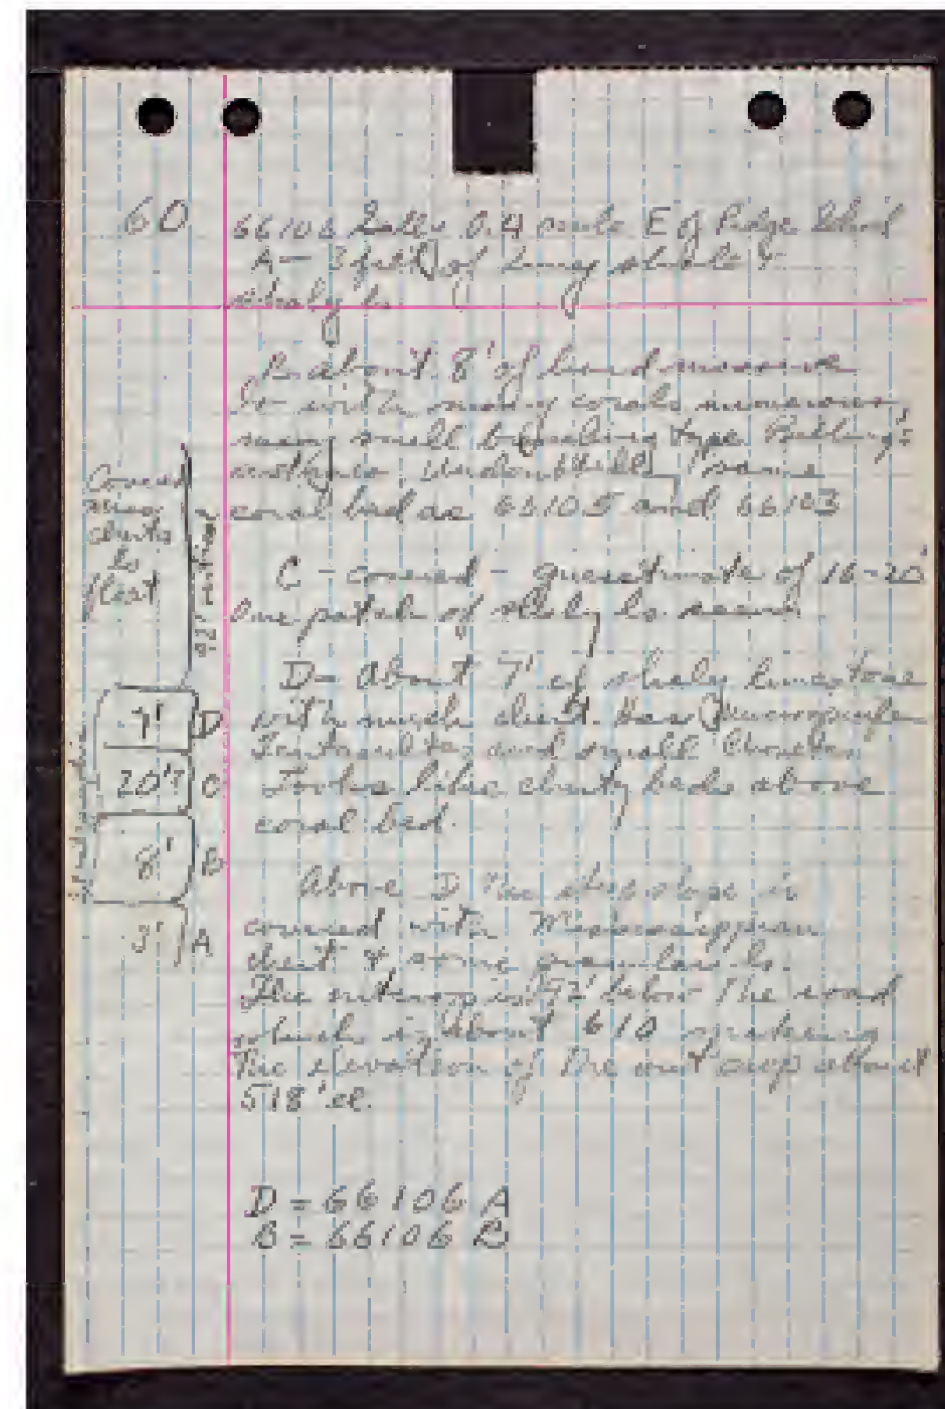 60
66106 Gully 0.4 mile E of Ridge School
A - 3 feet of limey shale &
shaly ls
B about 8' of hard massive
ls with many corals numerous,
many small branching type
same
coral bed as 66105 and 66103
C - covered - guesstimate of 16-20'
One patch of shaly ls seen.
D - About 7' of shaly limestone
with much chert. Has
and small
Looks like cherty beds above
coral bed.
Above D the slope is
covered with Mississippian
chert & some granular ls.
The outcrop is 92' below the road
which is about 610 making
the elevation of the outcrop about
518' el.
D = 66106 A
B = 66106 B
Covered
Miss
cherts
ls
float
92' vertical
7' D
20'? C
8' B
3' A